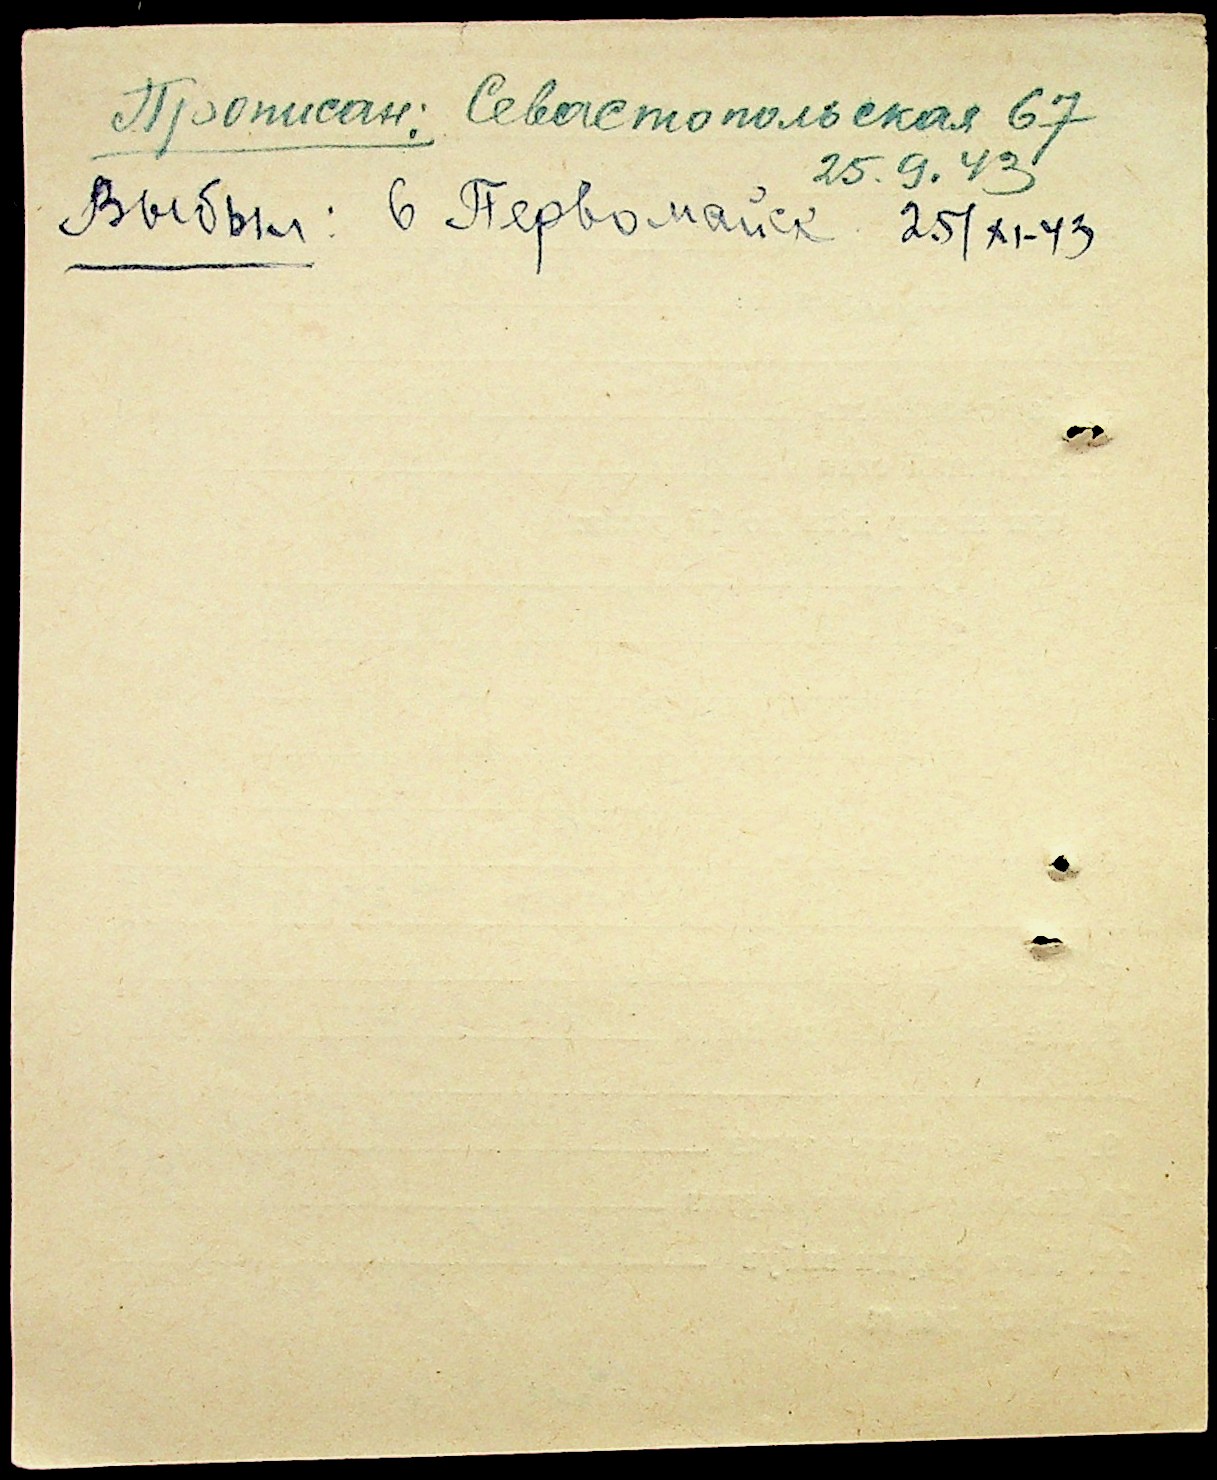 Прописан: Севастопольская 67
25.9.43
Выбыл: в Первомайск 25/XI-43